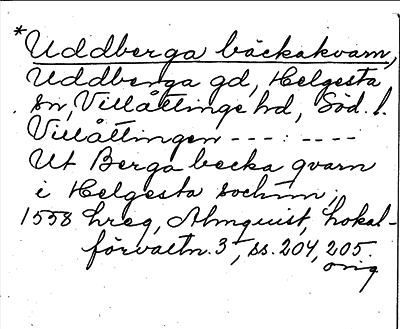 *Uddberga bäckakvarn,
Uddberga gd, Helgesta
sn, Villåttinge hd, Söd. l.
Villåttingen - - - : - - - -
Ut Berga becka qvarn
i Helgesta sochnn;
1558 hreg, Almquist, Lokal-
förvaltn. 3, ss. 204, 205.
orig